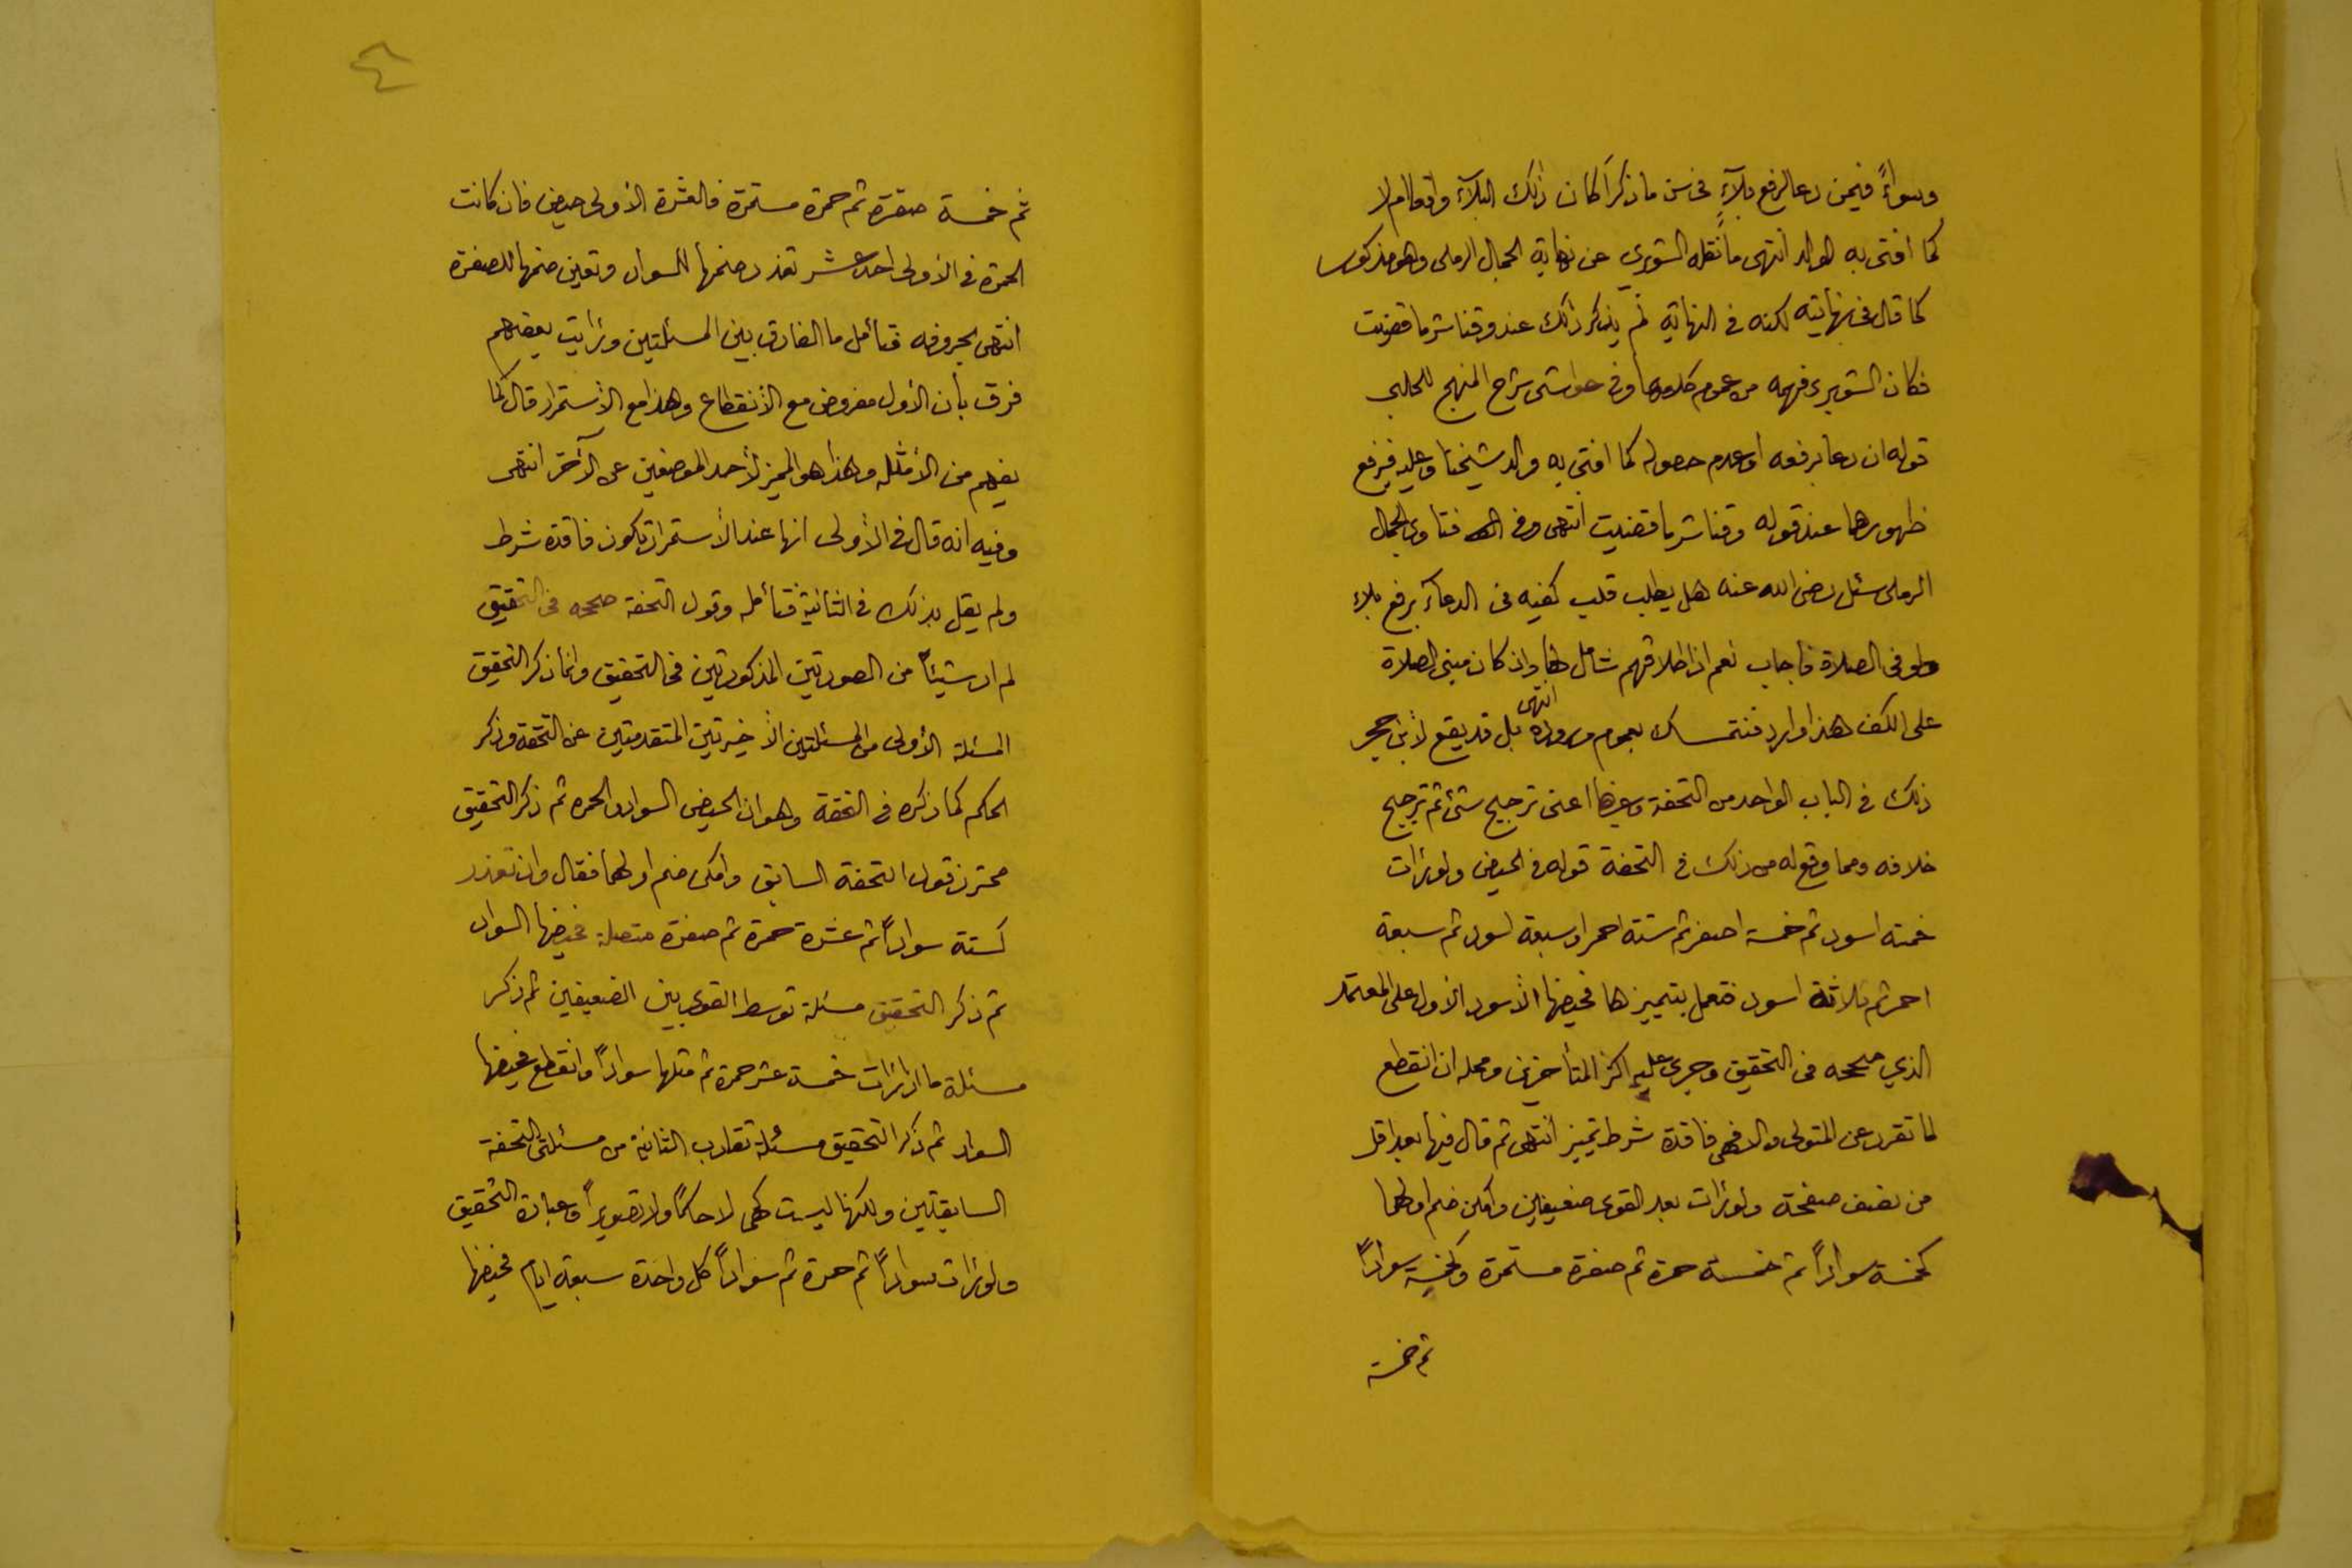 وسواءً فيمن دعا لرفع بلآءٍ في سن ما ذكر أكان ذلك البلآء واقعا ام لا
كما افتى به الوالد انتهى ما نقله الشوبري عن نهاية الجمال الرملي وهو مذكور
كما قال في نهايته لكنه في النهاية لم يذكر ذلك عند وقنا شر ما قضيت
فكان الشوبري فهمه من عموم كلامها وفي حواشي شرح المنهج للحلبي
قوله ان دعا برفعه او عدم حصوله كما افتى به والد شيخنا وعليه فيرفع
ظهورهما عند قوله وقنا شر ما قضيت انتهى وفي فتاوى الجمال
الرملي سئل رضي الله عنه هل يطلب قلب كفيه في الدعآء برفع بلاء
ولو في الصلاة فاجاب نعم اذ اطلاقهم شامل لها وان كان مبنى الصلاة
على الكف هذا وارد فنتمسك بعموم وروده انتهى بل قد يقع لأبن حجر
ذلك في الباب الواحد من التحفة وغيرها اعني ترجيح شئ ثم ترجيح
خلافه ومما وقع له من ذلك في التحفة قوله في الحيض ولو رأت
خمسة اسود ثم خمسة اصفر ثم ستة احمر او سبعة اسود ثم سبعة
احمر ثم ثلاثة اسود فتعمل بتمييزها فحيضها الأسود الأول على المعتمد
الذي صححه في التحقيق وجرى عليه اكثر المتأخرين ومحله ان انقطع
لما تقرر عن المتولي والا فهي فاقدة شرط تمييز انتهى ثم قال فيها بعد اقل
من نصف صفحة ولو رأت بعد القوى ضعيفين وامكن ضم اولهما
كخمسة سواداً ثم خمسة حمرة ثم صفرة مستمرة وكخمسة سواداً
ثم خمسة
ثم خمسة صفرة ثم حمرة مستمرة فالعشرة الأولى حيض فان كانت
الحمرة في الأولى احد عشر تعذر ضمها للسواد وتعين ضمها للصفرة
انتهى بحروفه فتأمل ما الفارق بين المسئلتين ورأيت بعضهم
فرق بأن الأول مفروض مع الأنقطاع وهذا مع الأستمرار قال كما
يفهم من الأمثلة وهذا هو المميز لأحد الموضعين عن الآخر انتهى
وفيه انه قال في الأولى انها عند الأستمرار تكون فاقدة شرط
ولم يقل بذلك في الثانية فتأمله وقول التحفة صححه في التحقيق
لم ار شيئاً من الصورتين المذكورتين في التحقيق وانما ذكر التحقيق
المسئلة الأولى من المسئلتين الأخيرتين المتقدمتين عن التحفة وذكر
الحكم كما ذكره في التحفة وهو ان الحيض السواد والحمرة ثم ذكر التحقيق
محترز قول التحفة السابق وامكن ضم اولهما فقال وان تعذر
كستة سواداً ثم عشرة حمرة ثم صفرة متصلة فحيضها السواد
ثم ذكر التحقيق مسئلة توسط القوى بين الضعيفين ثم ذكر
مسئلة ما اذا رأت خمسة عشر حمرة ثم مثلها سواداً وانقطع فحيضها
السواد ثم ذكر التحقيق مسئلة تقارب الثانية من مسئلتي التحفة
السابقتين ولكنها ليست هي لا حكماً ولا تصويراً وعبارة التحقيق
ولو رأت سواداً ثم حمرة ثم سواداً كل واحدة سبعة ايام فحيضها